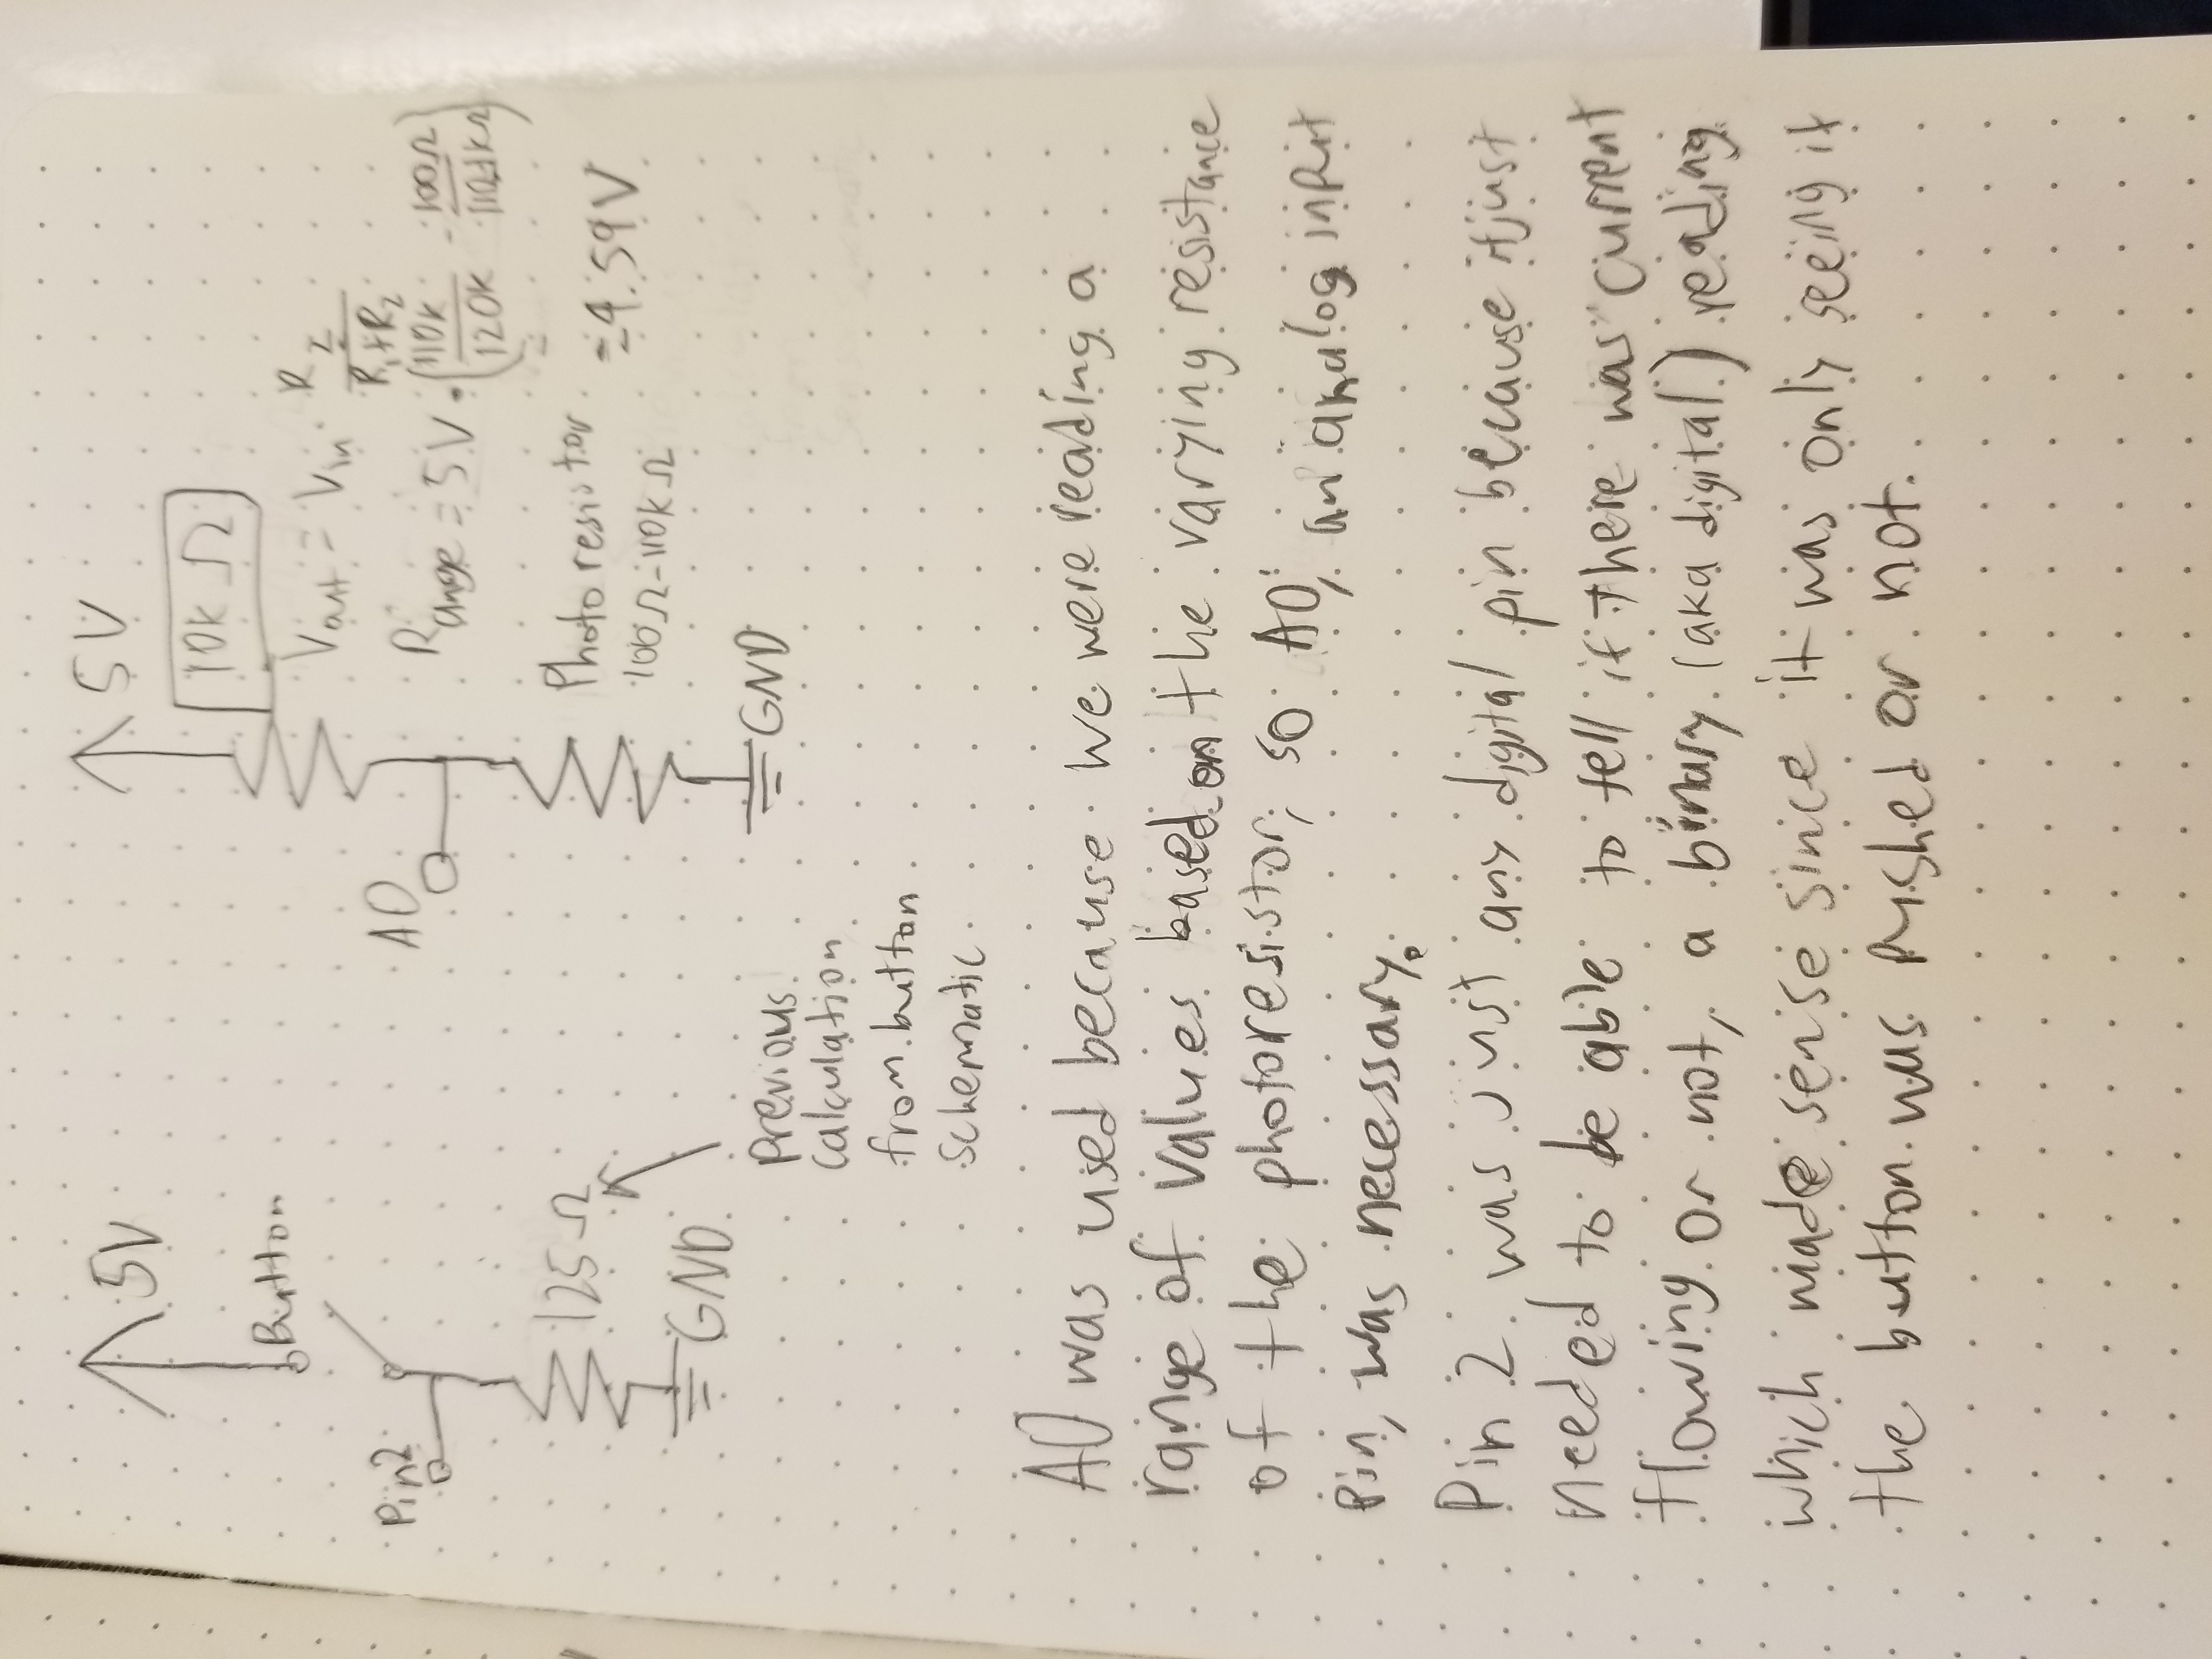 5V
Button
Pin2
125 Ω
GND
Previous
calculation
from button
schematic
5V
10k Ω
Vout = Vin · R2
R1+R2
A0
Range = 5V · (110k - 100Ω)
120k
Photoresistor
100Ω-110kΩ
=
=4.59V
GND
A0 was used because we were reading a
range of values based on the varying resistance
of the photoresistor, so A0, an analog input
pin, was necessary.
Pin 2 was just any digital pin because it just
needed to be able to tell if there was current
flowing or not, a binary (aka digital) reading
which made sense since it was only seeing if
the button was pushed or not.